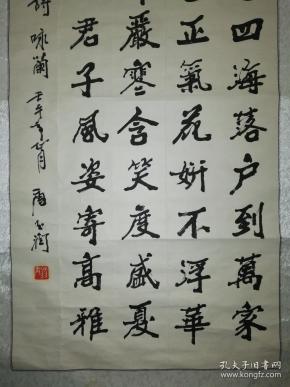 四海落户到萬家
正氣花妍不浮華
嚴寒含笑度盛夏
君子風姿寄高雅
詩詠蘭 壬午年 月
孔夫子旧书网